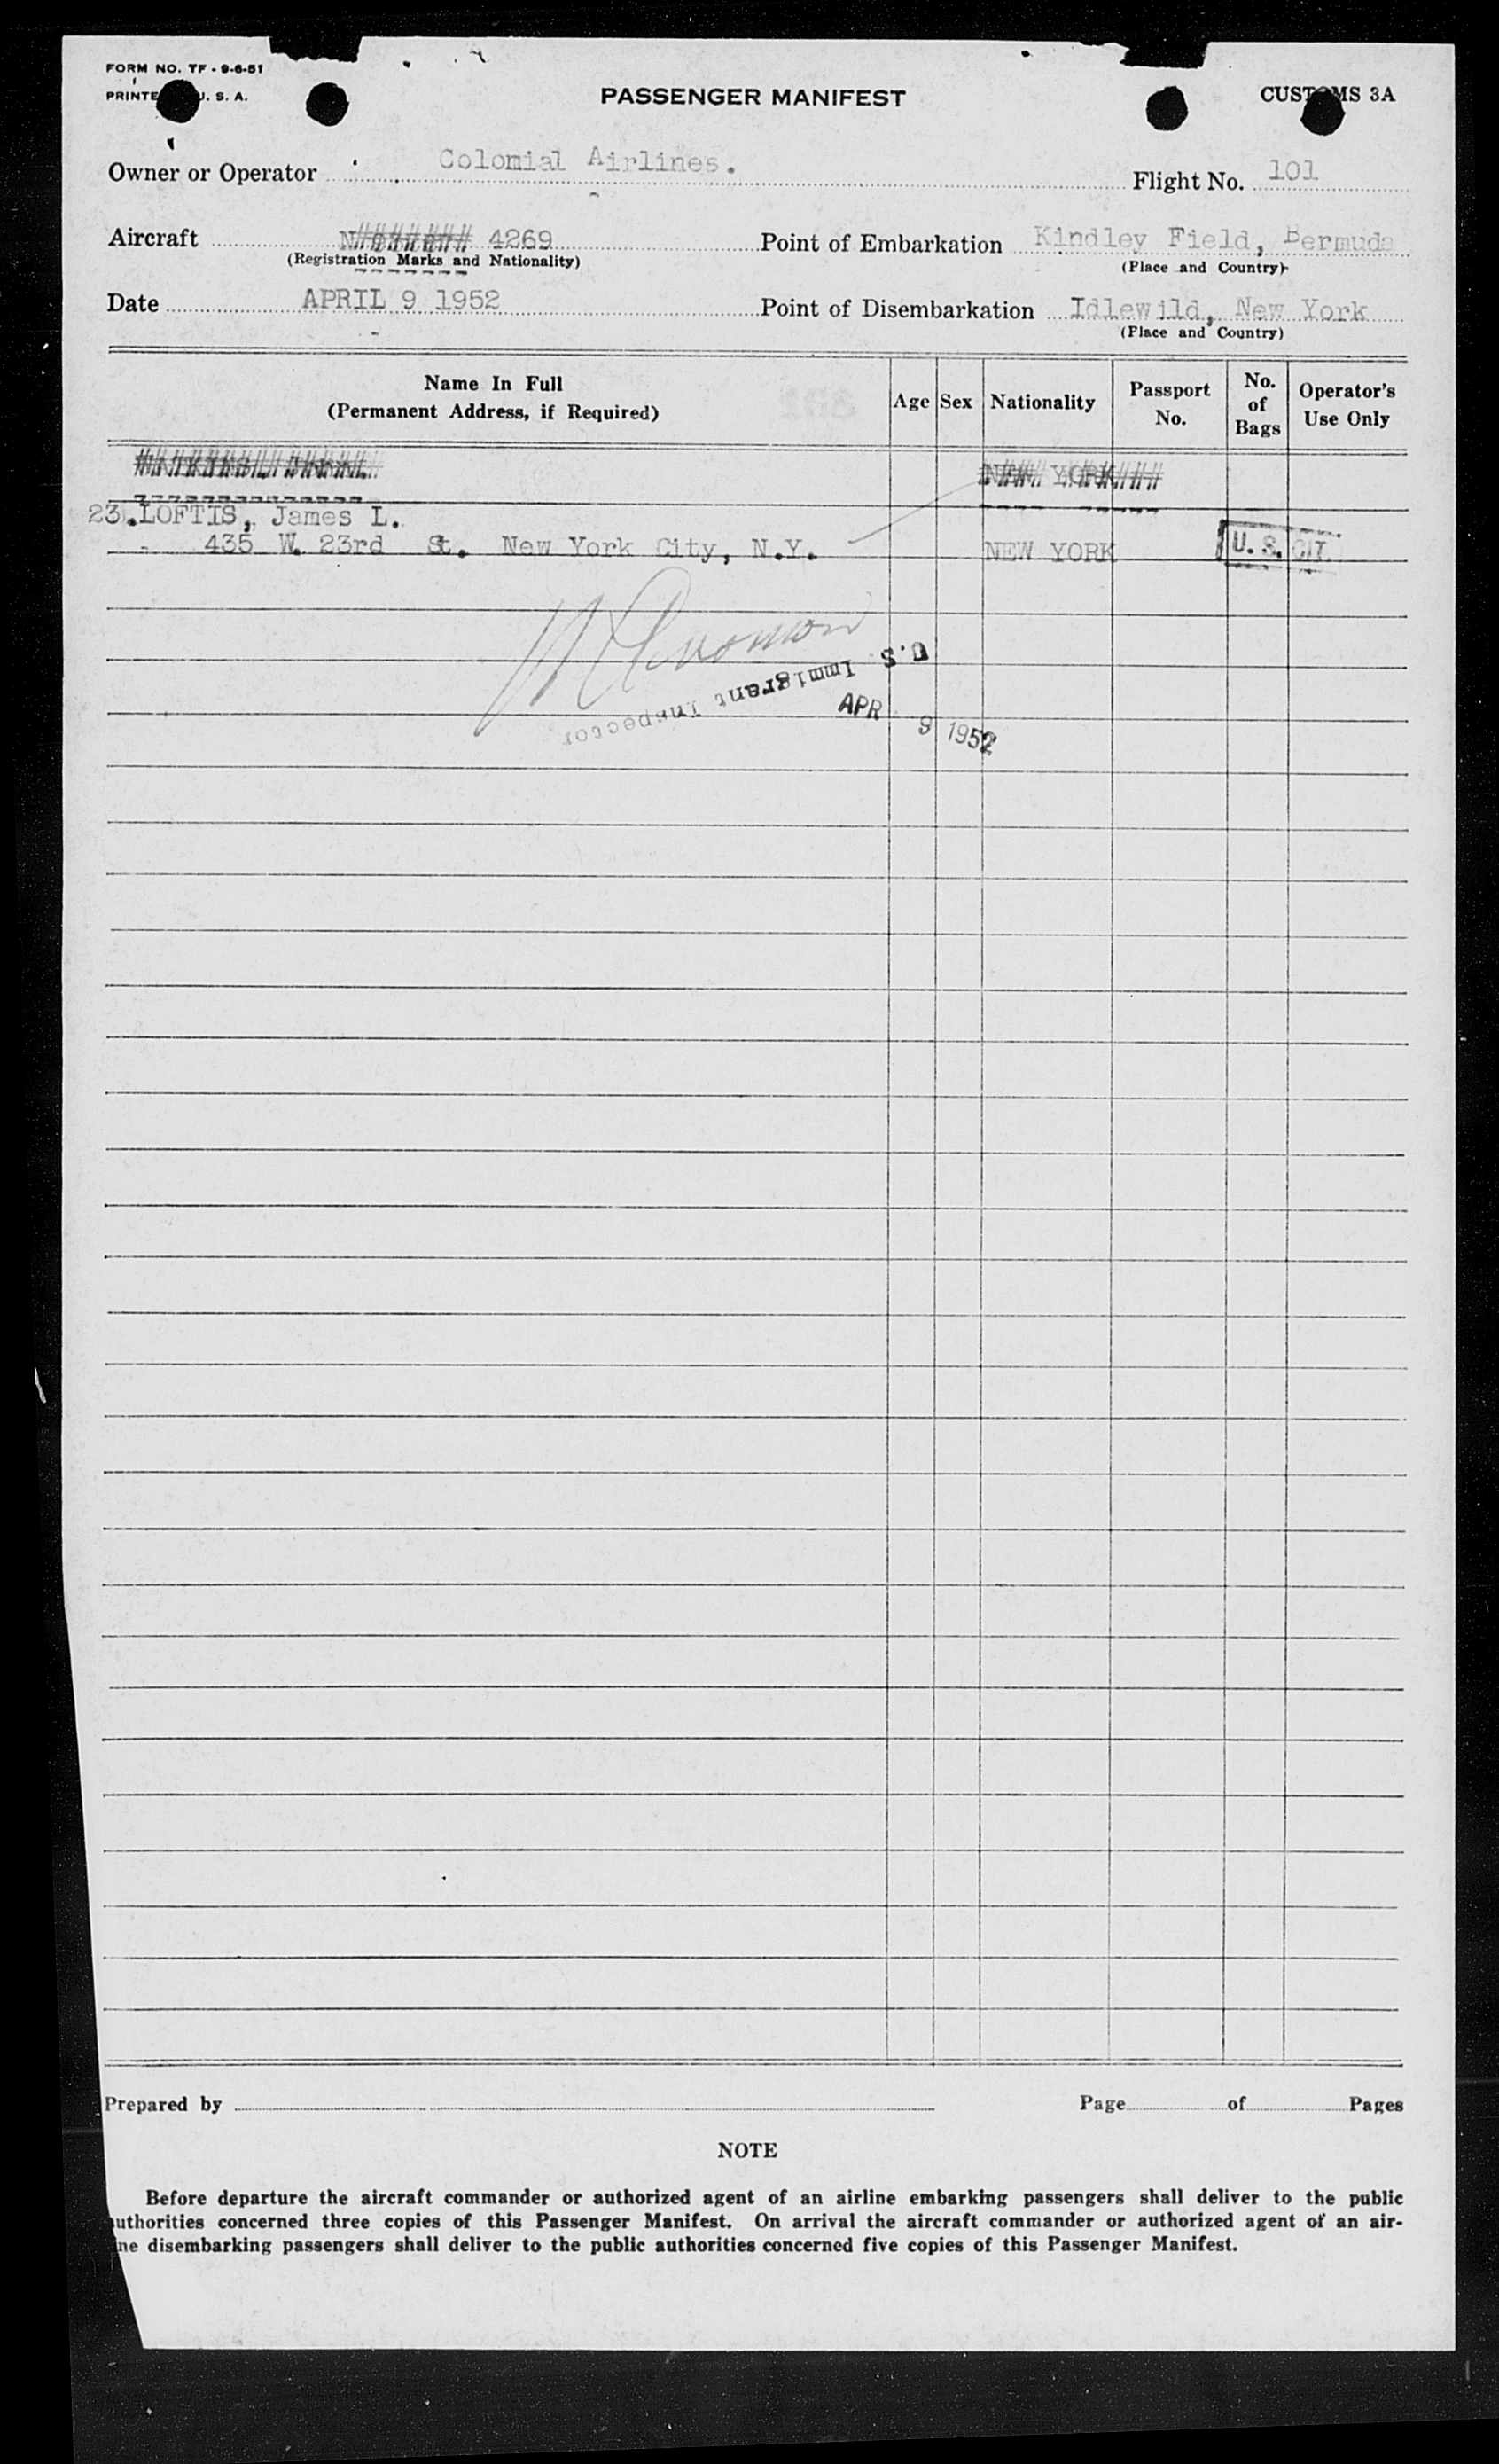 FORM NO. TF - 9-6-51
PRINTED U. S. A.
PASSENGER MANIFEST
CUSTOMS 3A
Owner or Operator Colonial Airlines.
Flight No. 101
Aircraft N 4269
(Registration Marks and Nationality)
Point of Embarkation Kindley Field, Bermuda
(Place and Country)
Date APRIL 9 1952
Point of Disembarkation Idlewild, New York
(Place and Country)
Name In Full
(Permanent Address, if Required)
Age
Sex
Nationality
Passport
No.
No.
of
Bags
Operator's
Use Only
NEW YORK
23.LOFTIS, James L.
435 W. 23rd St. New York City, N.Y.
NEW YORK
U. S. CIT.
U.S. Immigrant Inspector
APR 9 1952
Prepared by
Page of Pages
NOTE
Before departure the aircraft commander or authorized agent of an airline embarking passengers shall deliver to the public
uthorities concerned three copies of this Passenger Manifest. On arrival the aircraft commander or authorized agent of an air-
ne disembarking passengers shall deliver to the public authorities concerned five copies of this Passenger Manifest.